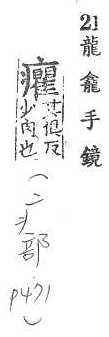 21 龍龕手鏡
癯
其俱反
少肉也
(二 疒部
p471)